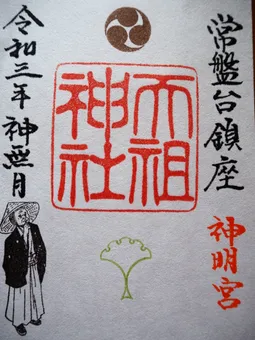 常盤台鎮座
神明宮
天祖神社
令和三年神無月